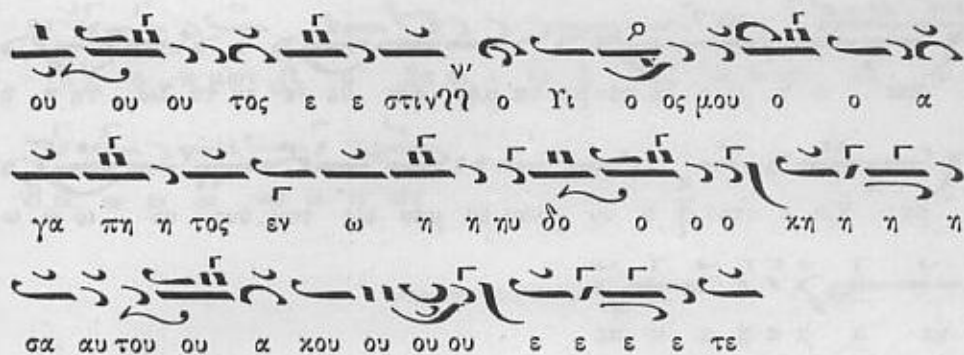 ν'
ου ου ου τος ε ε στινηη ο Υι ο ος μου ο ο α
γα πη η τος εν ω η η ηυ δο ο ο ο κη η η η
σα αυ του ου α κου ου ου ου ε ε ε ε τε